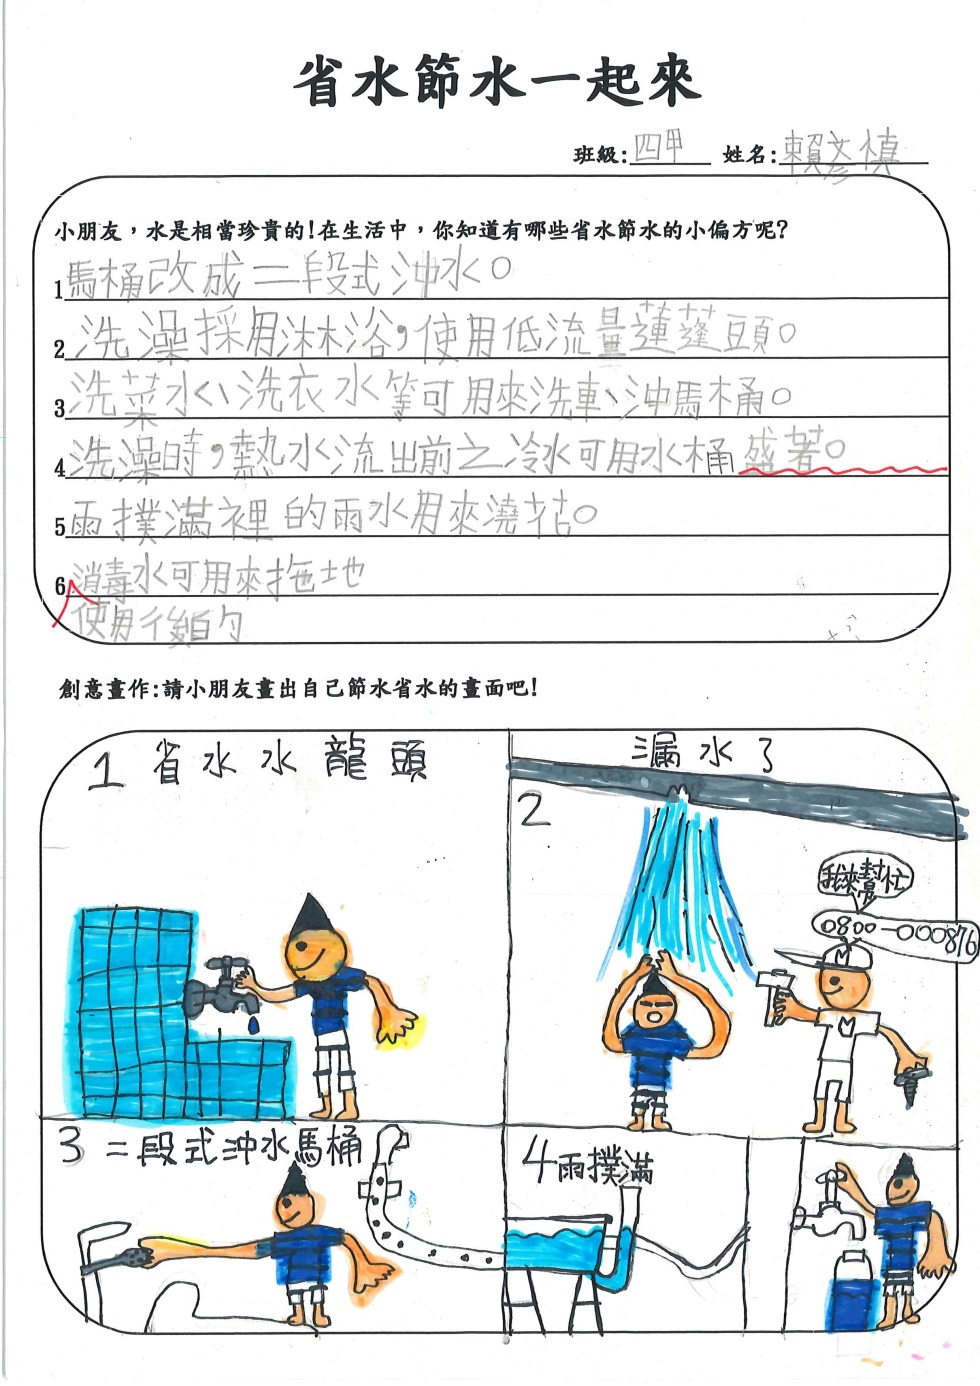 省水節水一起來
班級:四甲 姓名:賴彥楨
小朋友，水是相當珍貴的!在生活中，你知道有哪些省水節水的小偏方呢?
1馬桶改成二段式沖水。
2洗澡採用淋浴，使用低流量蓮蓬頭。
3洗菜水、洗衣水等可用來洗車、沖馬桶。
4洗澡時，熱水流出前之冷水可用水桶盛著。
5雨撲滿裡的雨水用來澆花。
6消毒水可用來拖地
使用後的
創意畫作:請小朋友畫出自己節水省水的畫面吧!
1 省水水龍頭
漏水了
2
我來幫忙
0800-000876
M
M
3 二段式沖水馬桶
4雨撲滿